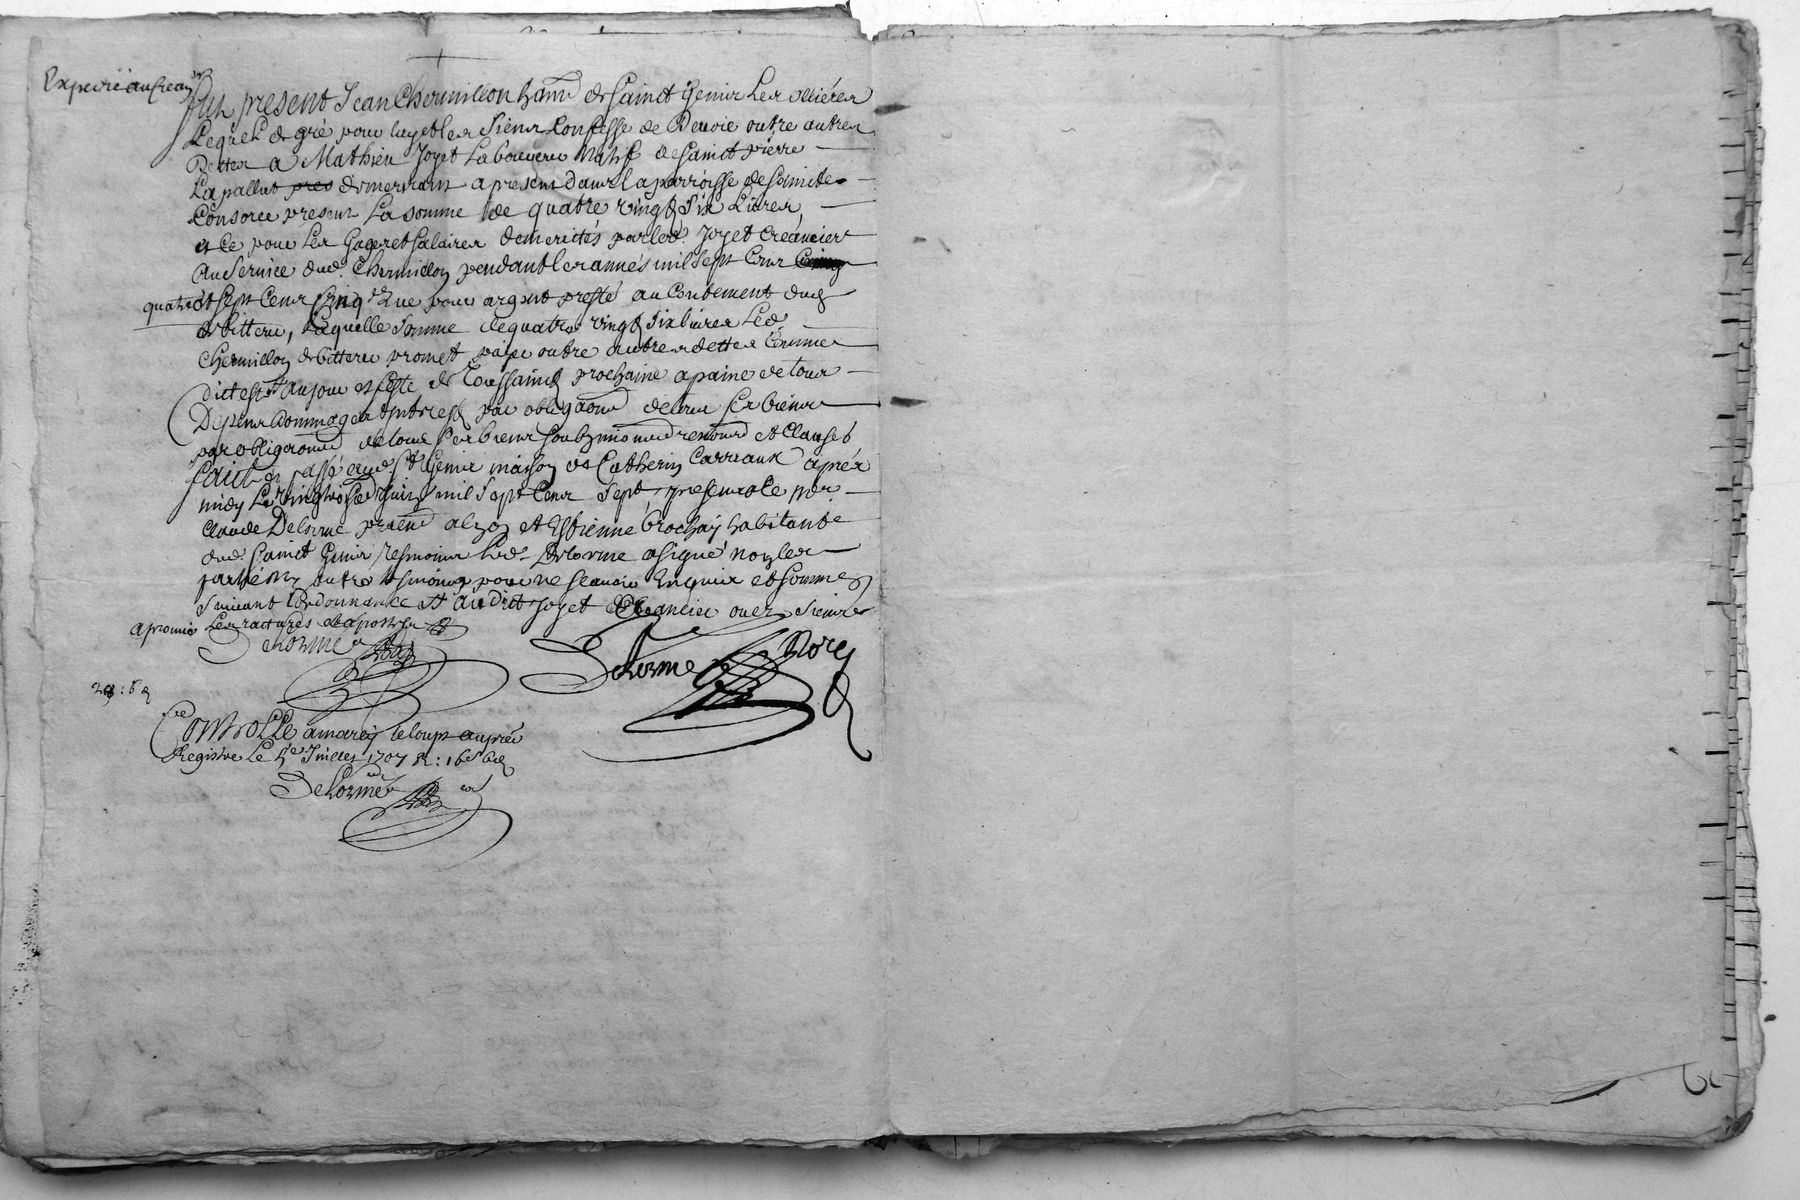 Expedié au crean
Fut present Jean Chermillon hant de Sainct Genier Les ollières
Lequel de gré pour luy et les Siens Confesse de Devoir outre autres
Dettes a Mathieu Joyet Laboureur Natif de Sainct pierre
La pallut pres demeurant a present dans la parroisse de Sainte
Consorce present La somme de quatre vingt Six Livres
et Ce pour Les Gages et Salaires demerités par led. Joyet Creancier
au Service dud. Chermillon pendant les années mil sept Cent Cinq
quatre et sept Cent Cinq que pour argent presté au Contement dud
debitteur, Laquelle Somme de quatre vingt Six livres Led.
Chermillon debitteur promet paÿer outre autres dettes Comme
dict est au jour et feste de Toussainct prochaine a paine de tous
Depens dommages Interest par obligaond de tous ses biens
par obligaond de tous ses biens Soubzmiond renond et Clauses
faict et passé aud St Genier maison de Catherin Carriaux après
midy Le vingt Juin mil sept Cent Sept, presents le sr
Claude Delorme et Estienne Brochaÿ habitants
dud Sainct Genier tesmoins Led. Delorme a signé non les
parties ny autre tesmoings pour ne scavoir Enquis et Sommes
Suivant L'ordonnance Et audict Joyet Creancier avec siens
aprouué Les ractures et apostille
Delorme
Delorme
Controllé a marcy le loup au pred
Registre Le 4e Juillet 1707 R: 16s 6d
Delorme